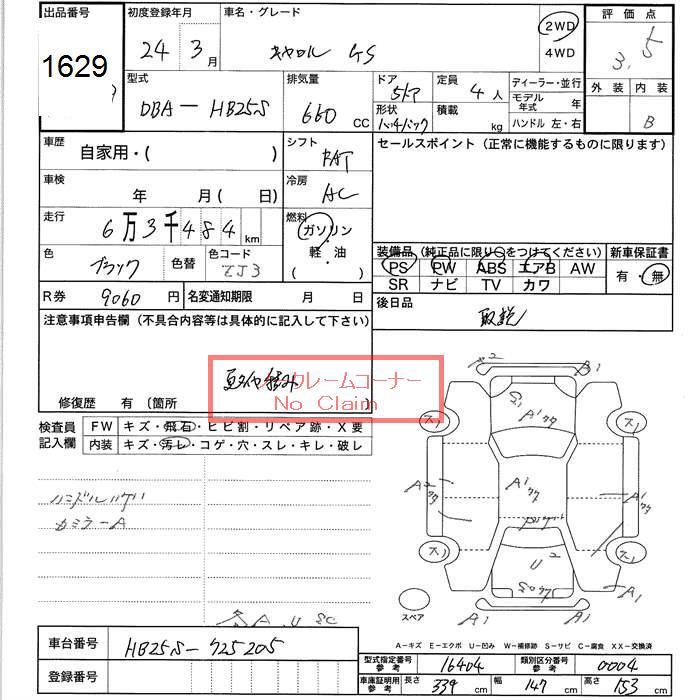 出品番号 初度登録年月 車名・グレード 評価点
1629 24年 3月 キャロル GS 2WD 4WD 3.5
外装 内装 B
型式 DBA-HB25S 排気量 660 CC ドア 5ドア 定員 4人 ディーラー・並行
形状 ハッチバック 積載 kg モデル年式 年
ハンドル 左・右
車歴 自家用・( ) シフト FAT セールスポイント (正常に機能するものに限ります)
車検 年 月( 日) 冷房 AC
走行 6万3千484km 燃料 ガソリン・軽・油
色 ブラック 色替 色コード ZJ3
装備品 (純正品に限り○をつけてください) 新車保証書
PS PW ABS エアB AW 有・無
SR ナビ TV カワ
R券 9060円 名変通知期限 月 日 後日品
取説
注意事項申告欄 (不具合内容等は具体的に記入して下さい)
ノークレームコーナー
No Claim
修復歴 有 〔箇所
検査員記入欄 FW キズ・飛石・ヒビ割・リペア跡・X要
内装 キズ・汚レ・コゲ・穴・スレ・キレ・破レ
ハンドルハゲ
カミラーA
A2 A1
S1 A1クク
ス1 ス1
A2クク A1クク A1クク
U2
ス1 ス1
スペア A1 A1
A1
A, U, SC
A-キズ E-エクボ U-凹み W-補修跡 S-サビ C-腐食 XX-交換済
車台番号 HB25S-725205
登録番号
型式指定番号 参考 16404 類別区分番号 参考 0004
車庫証明用 参考 長さ 339 cm 幅 147 cm 高さ 153 cm